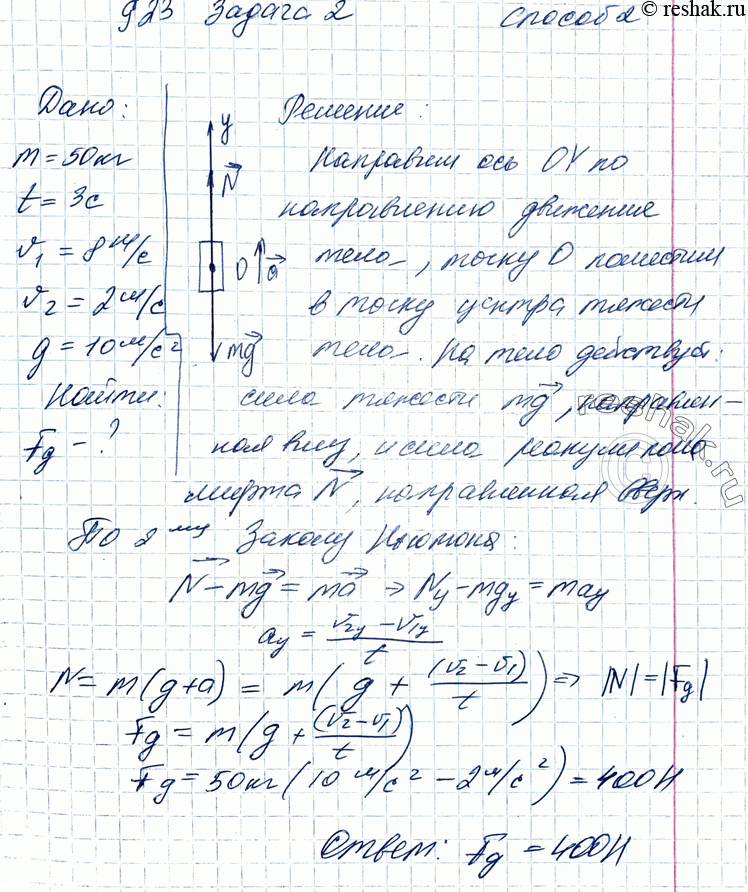 © reshak.ru
§23 Задача 2 Способ 2
Дано: Решение:
m = 50кг
t = 3с
v₁ = 8 м/с
v₂ = 2 м/с
g = 10 м/с²
Найти:
Fg - ?
y
N
O a
mg
Направим ось OY по
направлению движение
тела, точку O поместим
в точку центра тяжести
тела. На тело действует:
сила тяжести mg, направлен-
ная вниз, и сила реакции пола
лифта N, направленная вверх.
По 2му Закону Ньютона:
N - mg = ma ⇒ Ny - mgy = may
ay = (v2y - v1y)/t
N = m(g+a) = m(g + (v₂ - v₁)/t) ⇒ |N| = |Fg|
Fg = m(g + (v₂ - v₁)/t)
Fg = 50кг(10 м/с² - 2 м/с²) = 400Н
Ответ: Fg = 400Н
reshak.ru
©